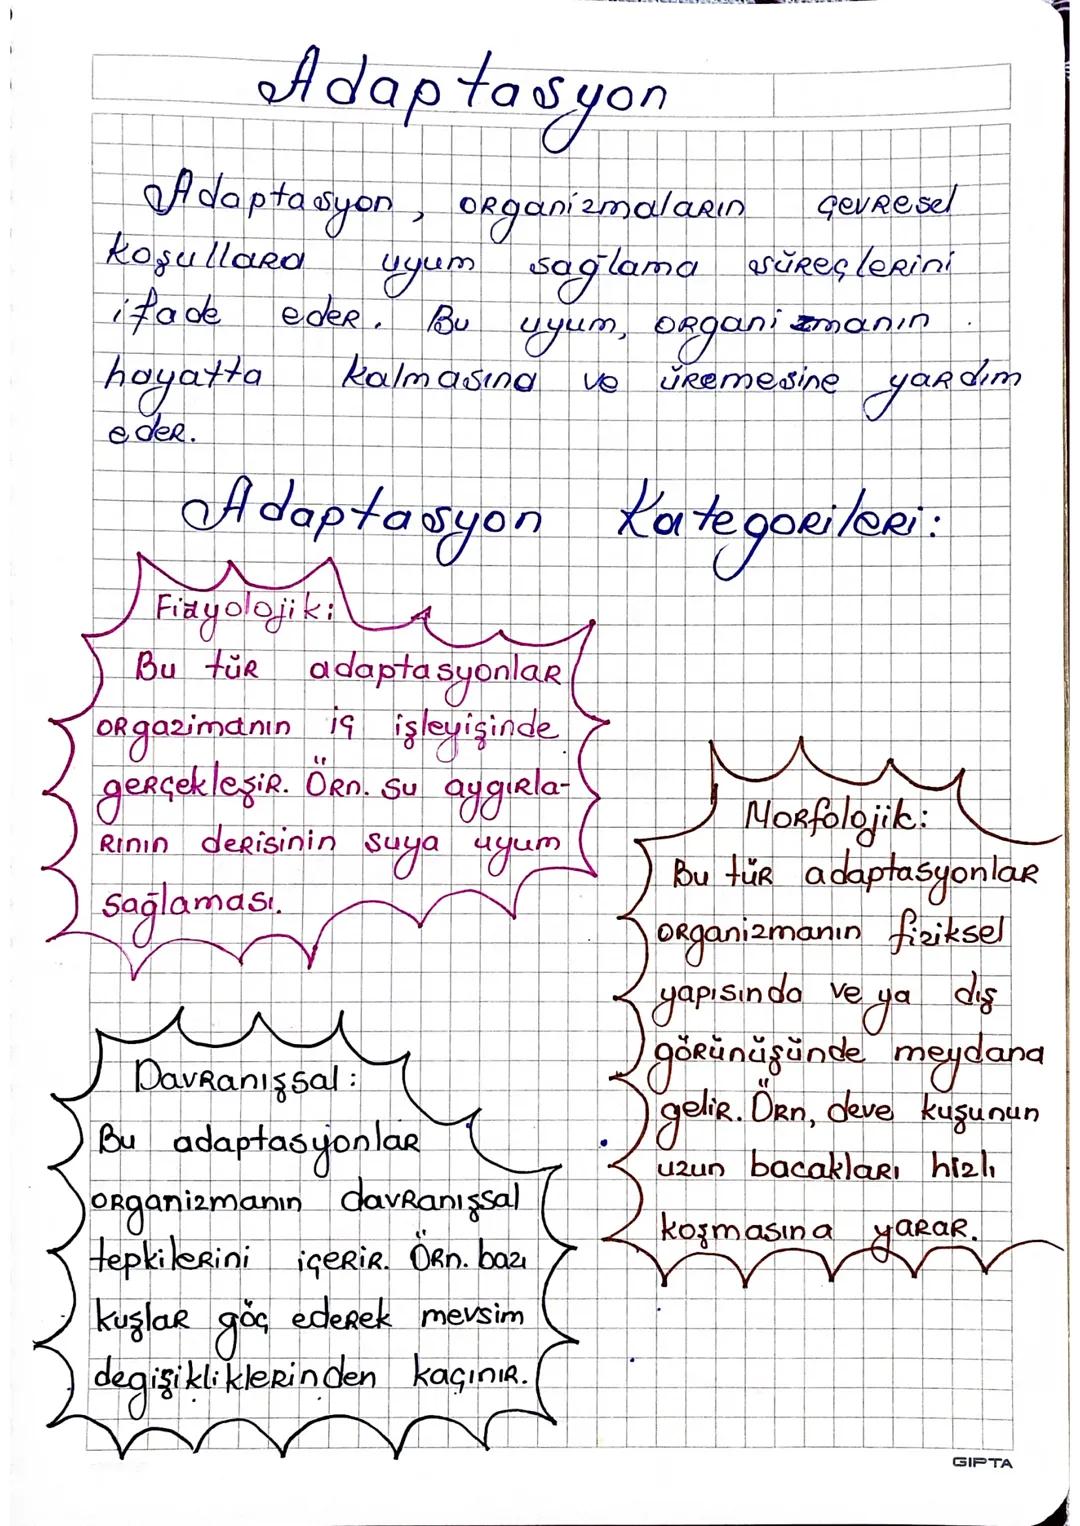 Adaptasyon
Adaptasyon, organizmaların çevresel
koşullara uyum sağlama süreçlerini
ifade eder. Bu uyum, organizmanın
hayatta kalmasına ve üremesine yardım
eder.
Adaptasyon Kategorileri:
Fizyolojik:
Bu tür adaptasyonlar
orgazimanın iç işleyişinde
gerçekleşir. Örn. su aygırla-
rının derisinin suya uyum
sağlaması.
Morfolojik:
Bu tür adaptasyonlar
organizmanın fiziksel
yapısında ve ya dış
görünüşünde meydana
gelir. Örn, deve kuşunun
uzun bacakları hızlı
koşmasına yarar.
Davranışsal:
Bu adaptasyonlar
organizmanın davranışsal
tepkilerini içerir. Örn. bazı
kuşlar göç ederek mevsim
degişikliklerinden kaçınır.
GIPTA